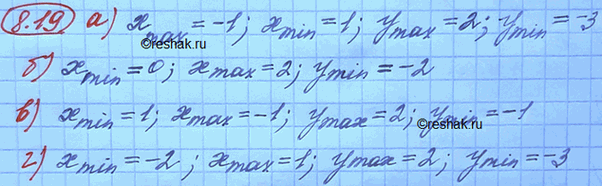 8.19 а) x max = -1; x min = 1; y max = 2; y min = -3
©reshak.ru
б) x min = 0; x max = 2; y min = -2
в) x min = 1; x max = -1; y max = 2; y min = -1
©reshak.ru
г) x min = -2; x max = 1; y max = 2; y min = -3